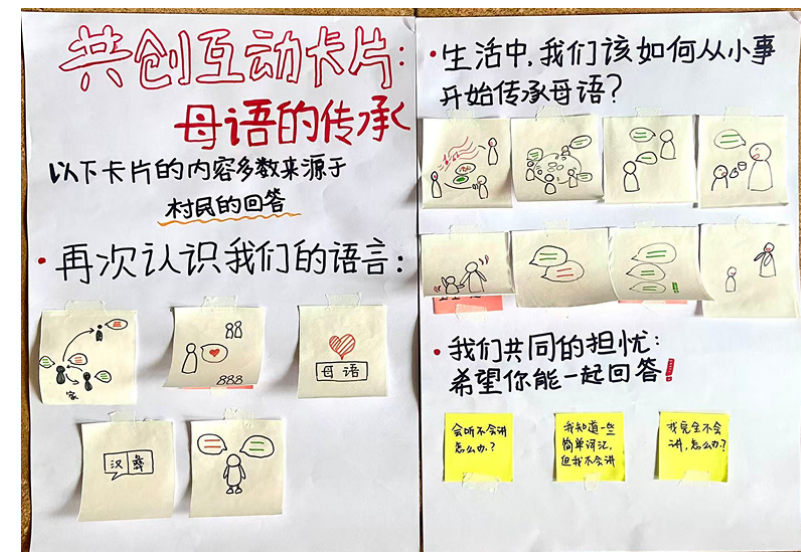 共创互动卡片:
母语的传承
以下卡片的内容多数来源于
村民的回答
·再次认识我们的语言:
家
888
母语
汉彝
·生活中,我们该如何从小事
开始传承母语?
·我们共同的担忧:
希望你能一起回答!
会听不会讲
怎么办?
我知道一些
简单词汇,
但我不会讲
我完全不会
讲,怎么办?